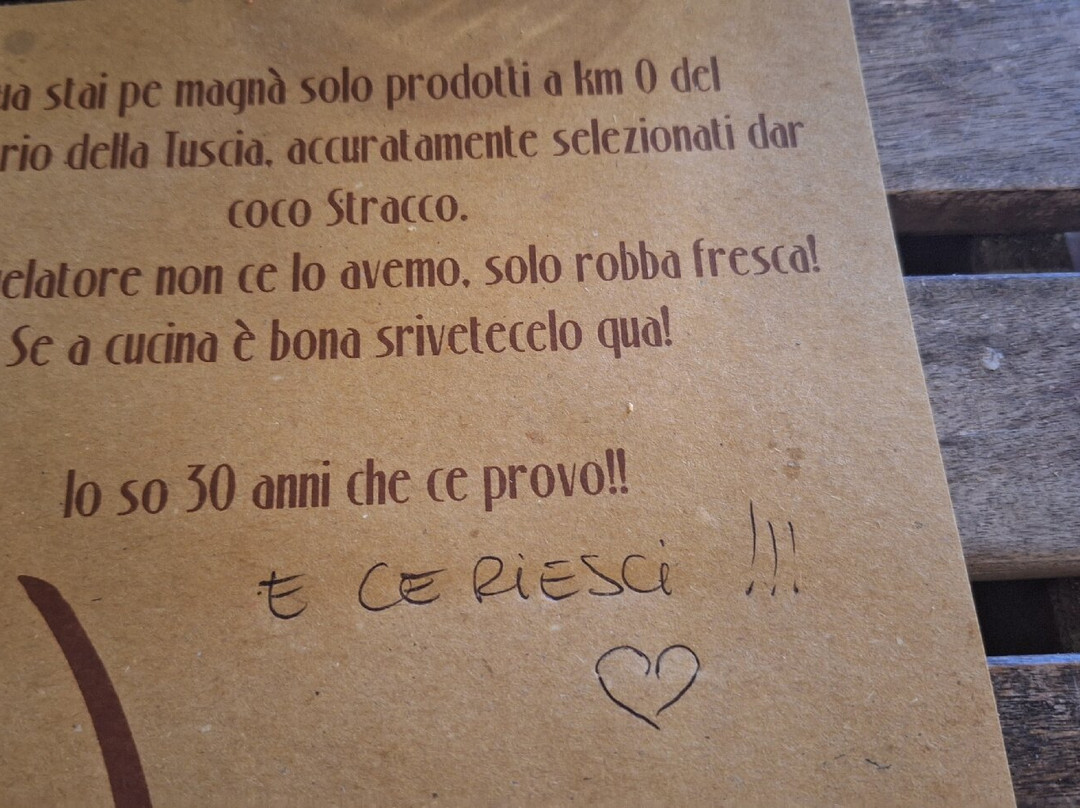 stai pe magnà solo prodotti a km 0 del
della Tuscia, accuratamente selezionati dar
coco Stracco.
elatore non ce lo avemo, solo robba fresca!
Se a cucina è bona srivetecelo qua!
Io so 30 anni che ce provo!!
E CE RIESCI !!!